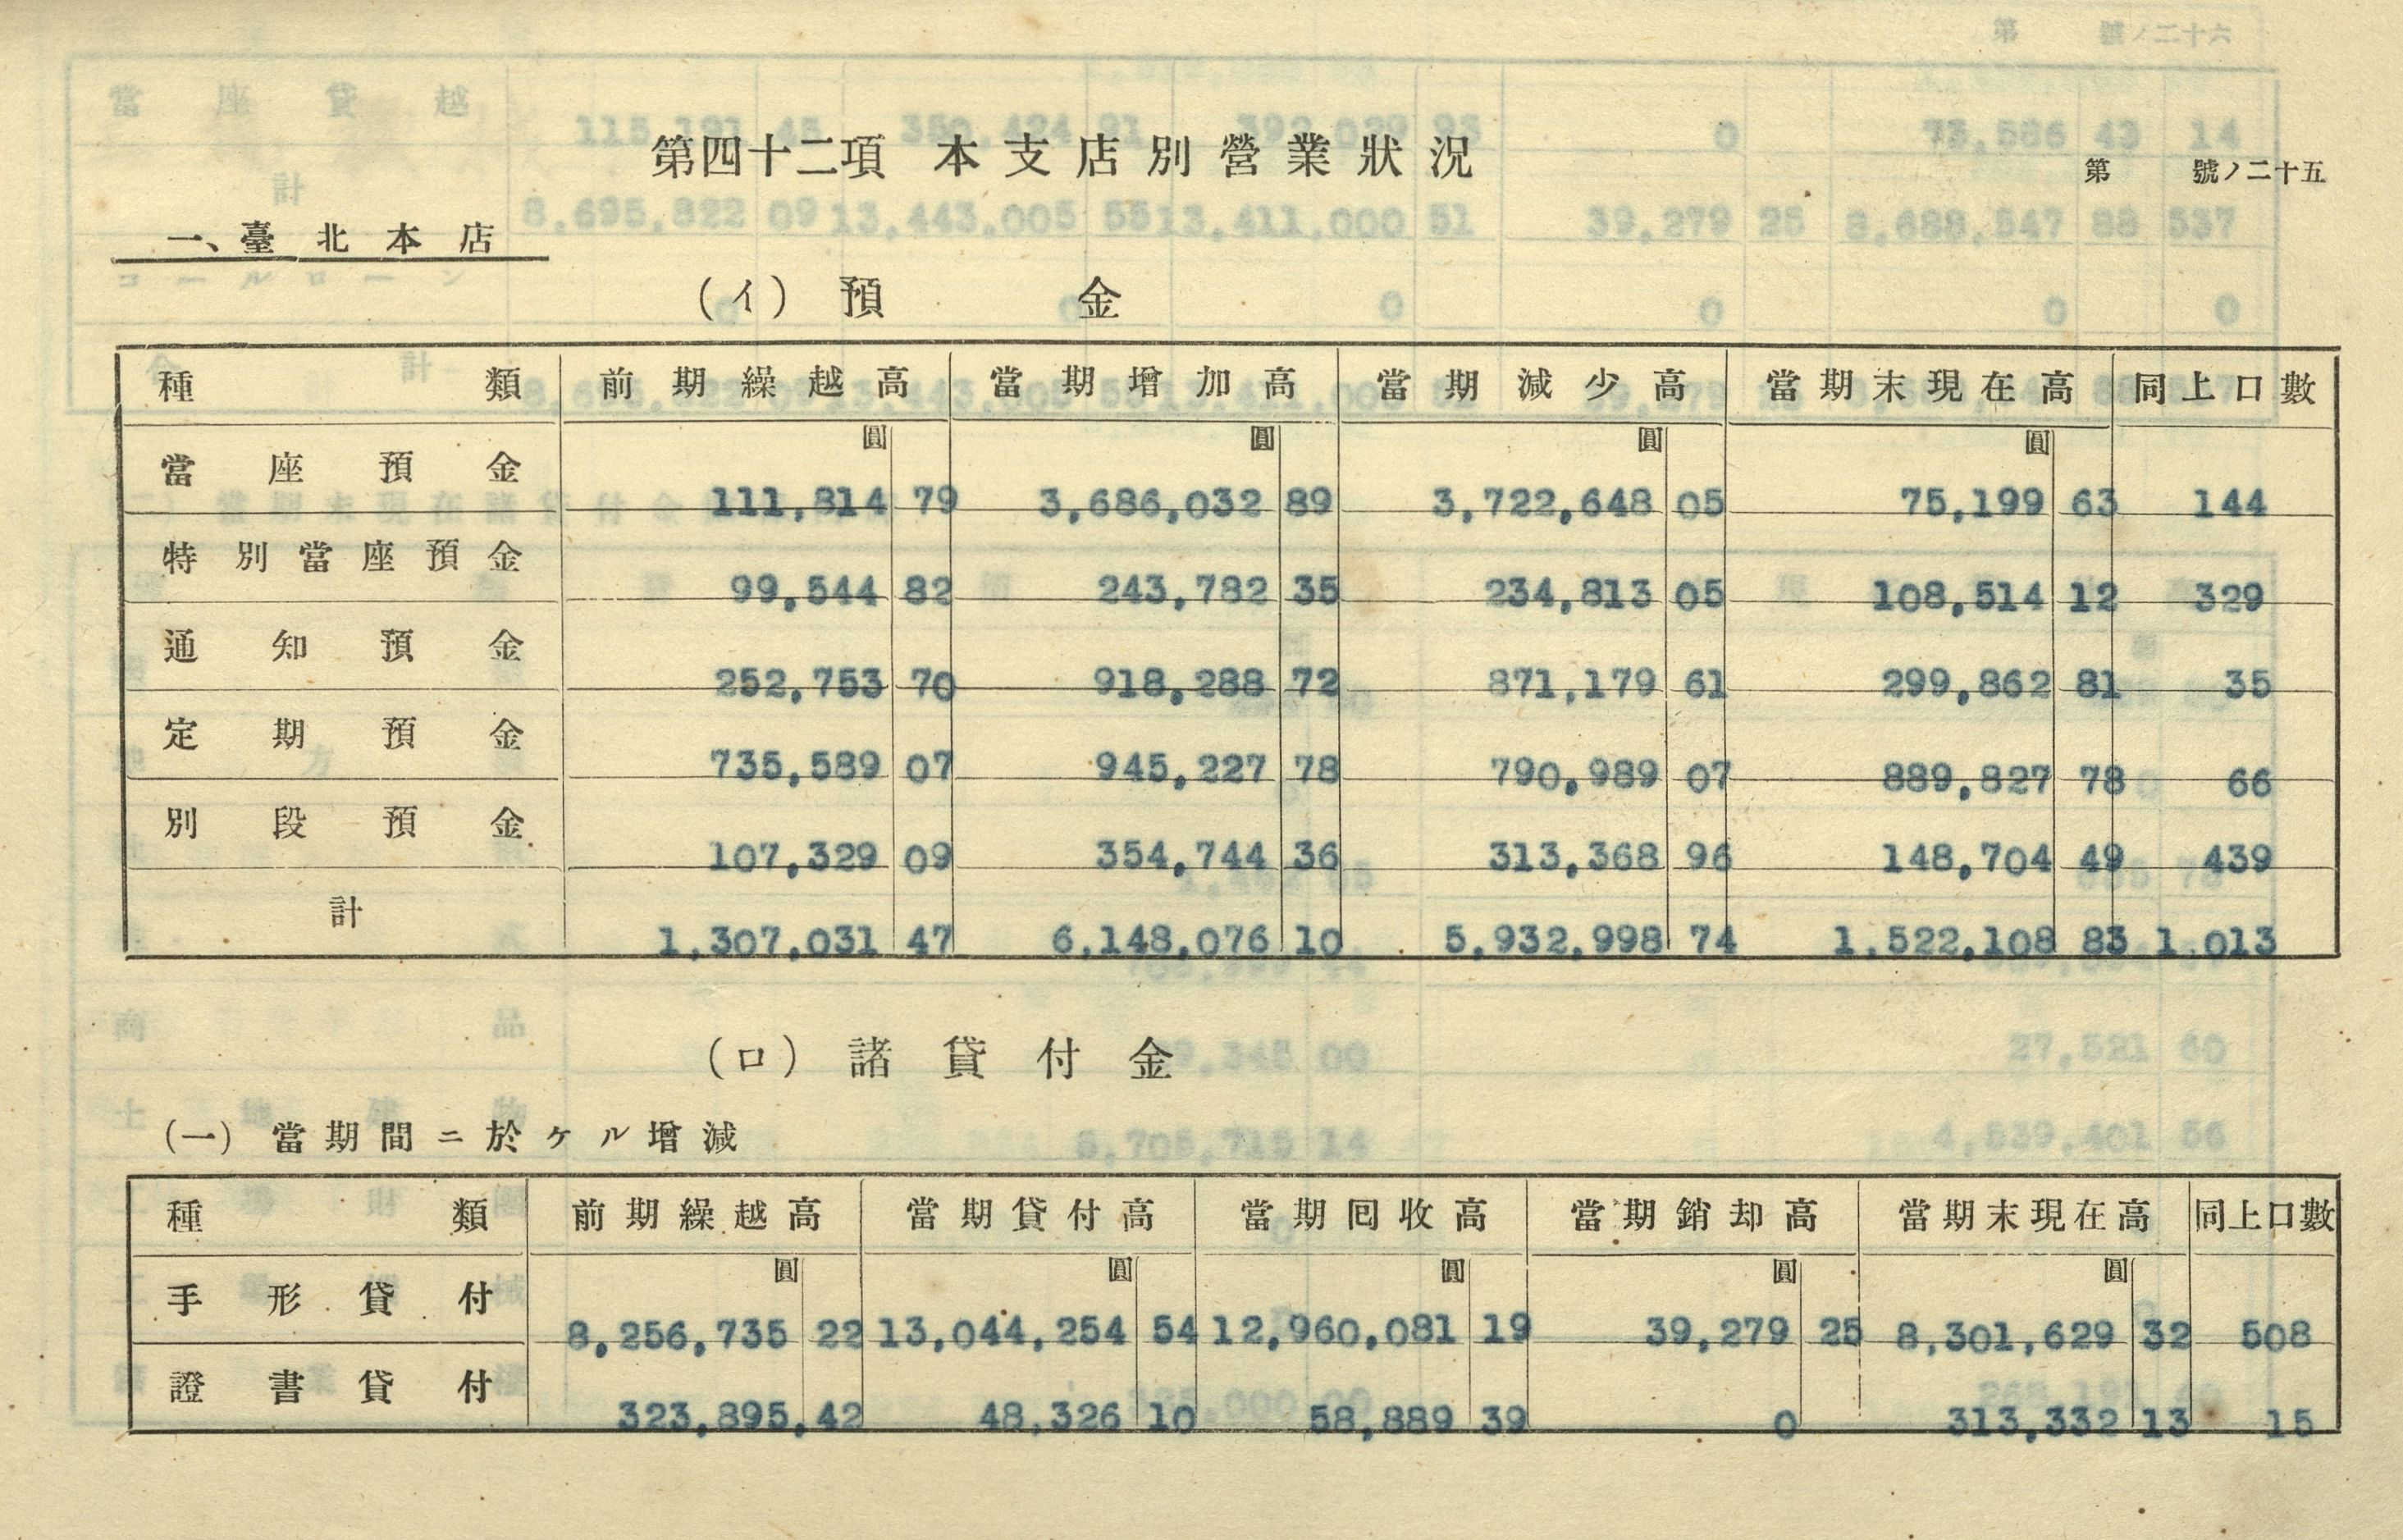 第四十二項 本支店別營業狀況
第 號ノ二十五
一、臺北本店
(イ) 預金
種類 前期繰越高 當期增加高 當期減少高 當期末現在高 同上口數
圓 圓 圓 圓
當座預金 111,814 79 3,686,032 89 3,722,648 05 75,199 63 144
特別當座預金 99,544 82 243,782 35 234,813 05 108,514 12 329
通知預金 252,753 70 918,288 72 871,179 61 299,862 81 35
定期預金 735,589 07 945,227 78 790,989 07 889,827 78 66
別段預金 107,329 09 354,744 36 313,368 96 148,704 49 439
計 1,307,031 47 6,148,076 10 5,932,998 74 1,522,108 83 1,013
(ロ) 諸貸付金
(一) 當期間ニ於ケル增減
種類 前期繰越高 當期貸付高 當期囘收高 當期銷却高 當期末現在高 同上口數
圓 圓 圓 圓 圓
手形貸付 8,256,735 22 13,044,254 54 12,960,081 19 39,279 25 8,301,629 32 508
證書貸付 323,895,42 48,326 10 58,889 39 0 313,332 13 15